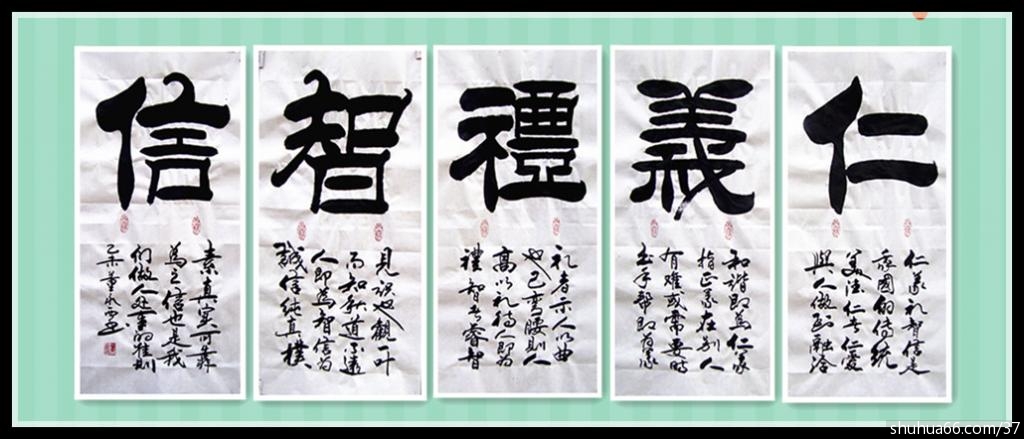 仁
仁义礼智信是
國的传统
美仁者仁爱
與人做到融洽
義
和谐即為仁義
指正義在别人
有难或需要時
出手帮即為義
禮
礼者示人以曲
也己弯腰則人
高以礼待人即为
禮智者睿智
智
見识也觀一叶
而知秋道不遠
人即為智信为
誠信純真樸
信
素真实可靠
為之信也是我
们做人处事的准则
shuhua66.com/37